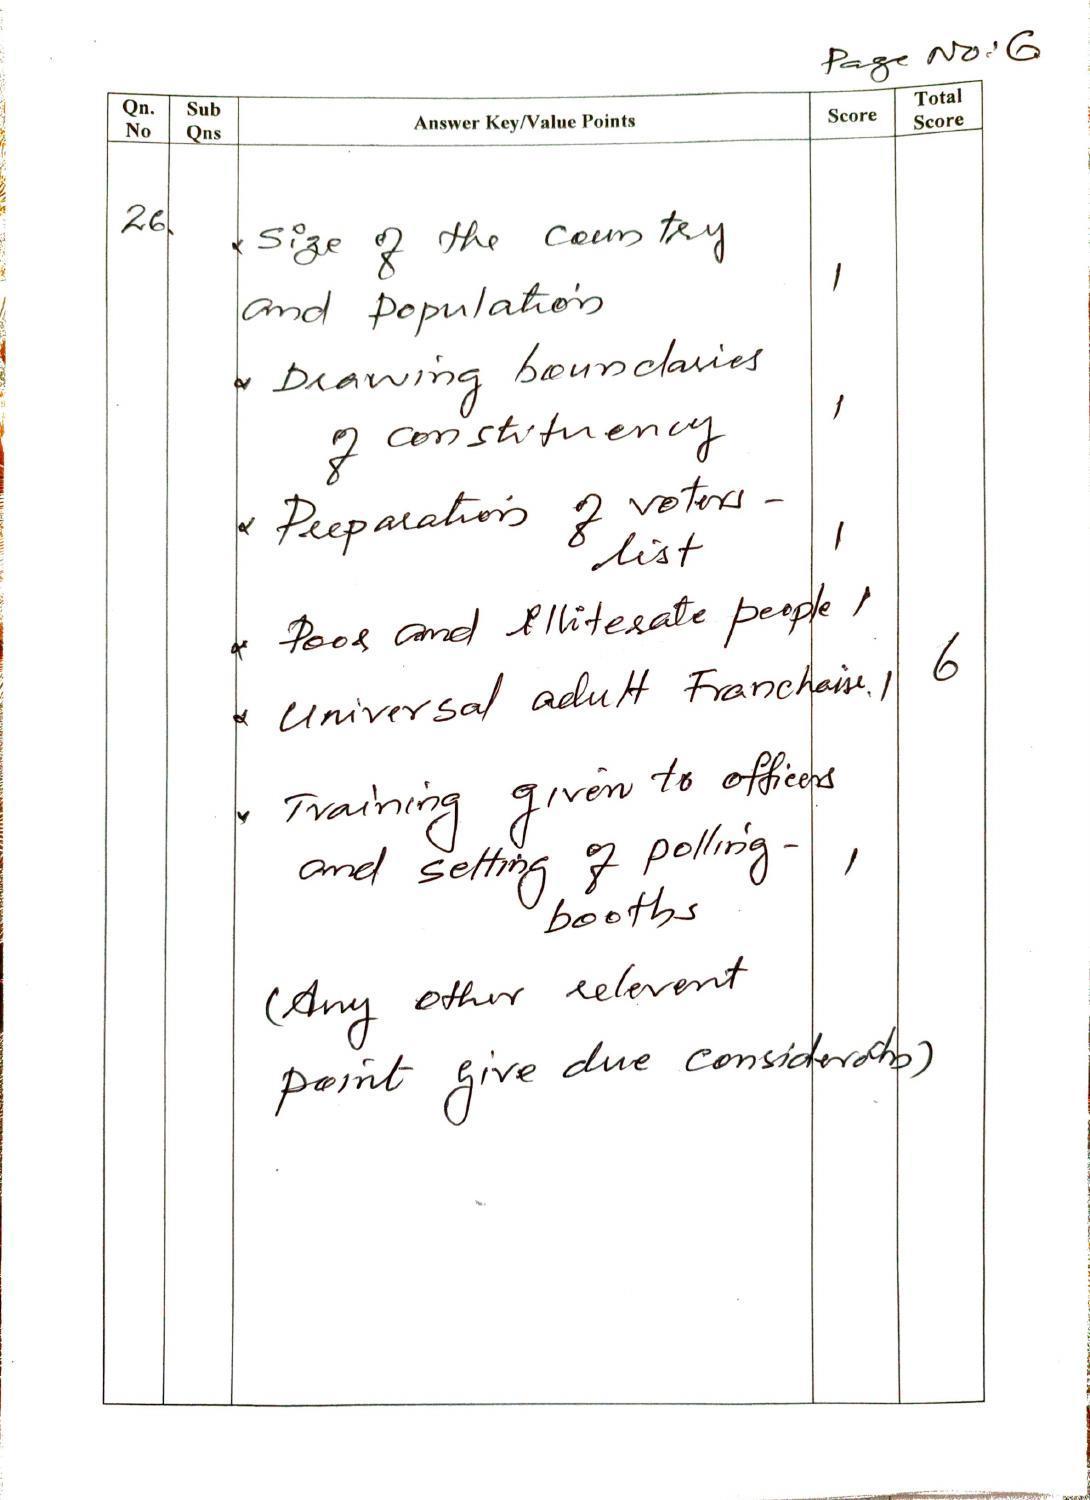 Page No: 6
Qn. No
Sub Qns
Answer Key/Value Points
Score
Total Score
26.
* Size of the country
and population
1
* Drawing boundaries
of constituency
1
* Preparation of voters-
list
1
* Poor and illiterate people 1
* Universal adult Franchaise. 1
6
* Training given to officers
and setting of polling-
booths
1
(Any other relevent
point give due consideration)